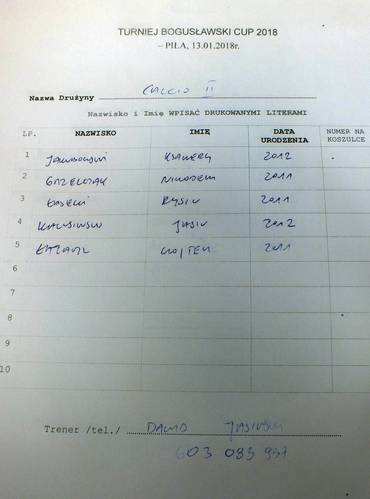 TURNIEJ BOGUSŁAWSKI CUP 2018
– PIŁA, 13.01.2018r.
Nazwa Drużyny CALCIO II
Nazwisko i Imię WPISAĆ DRUKOWANYMI LITERAMI
LP. NAZWISKO IMIĘ DATA URODZENIA NUMER NA KOSZULCE
1 KSAWERY 2012
2 GRZELCZAK NIKODEM 2011
3 ŁASECKI RYSIU 2011
4 KALISIŃSKI JASIU 2012
5 WOJTEK 2011
6
7
8
9
10
Trener /tel./ DAWID JASIŃSKI
603 083 937